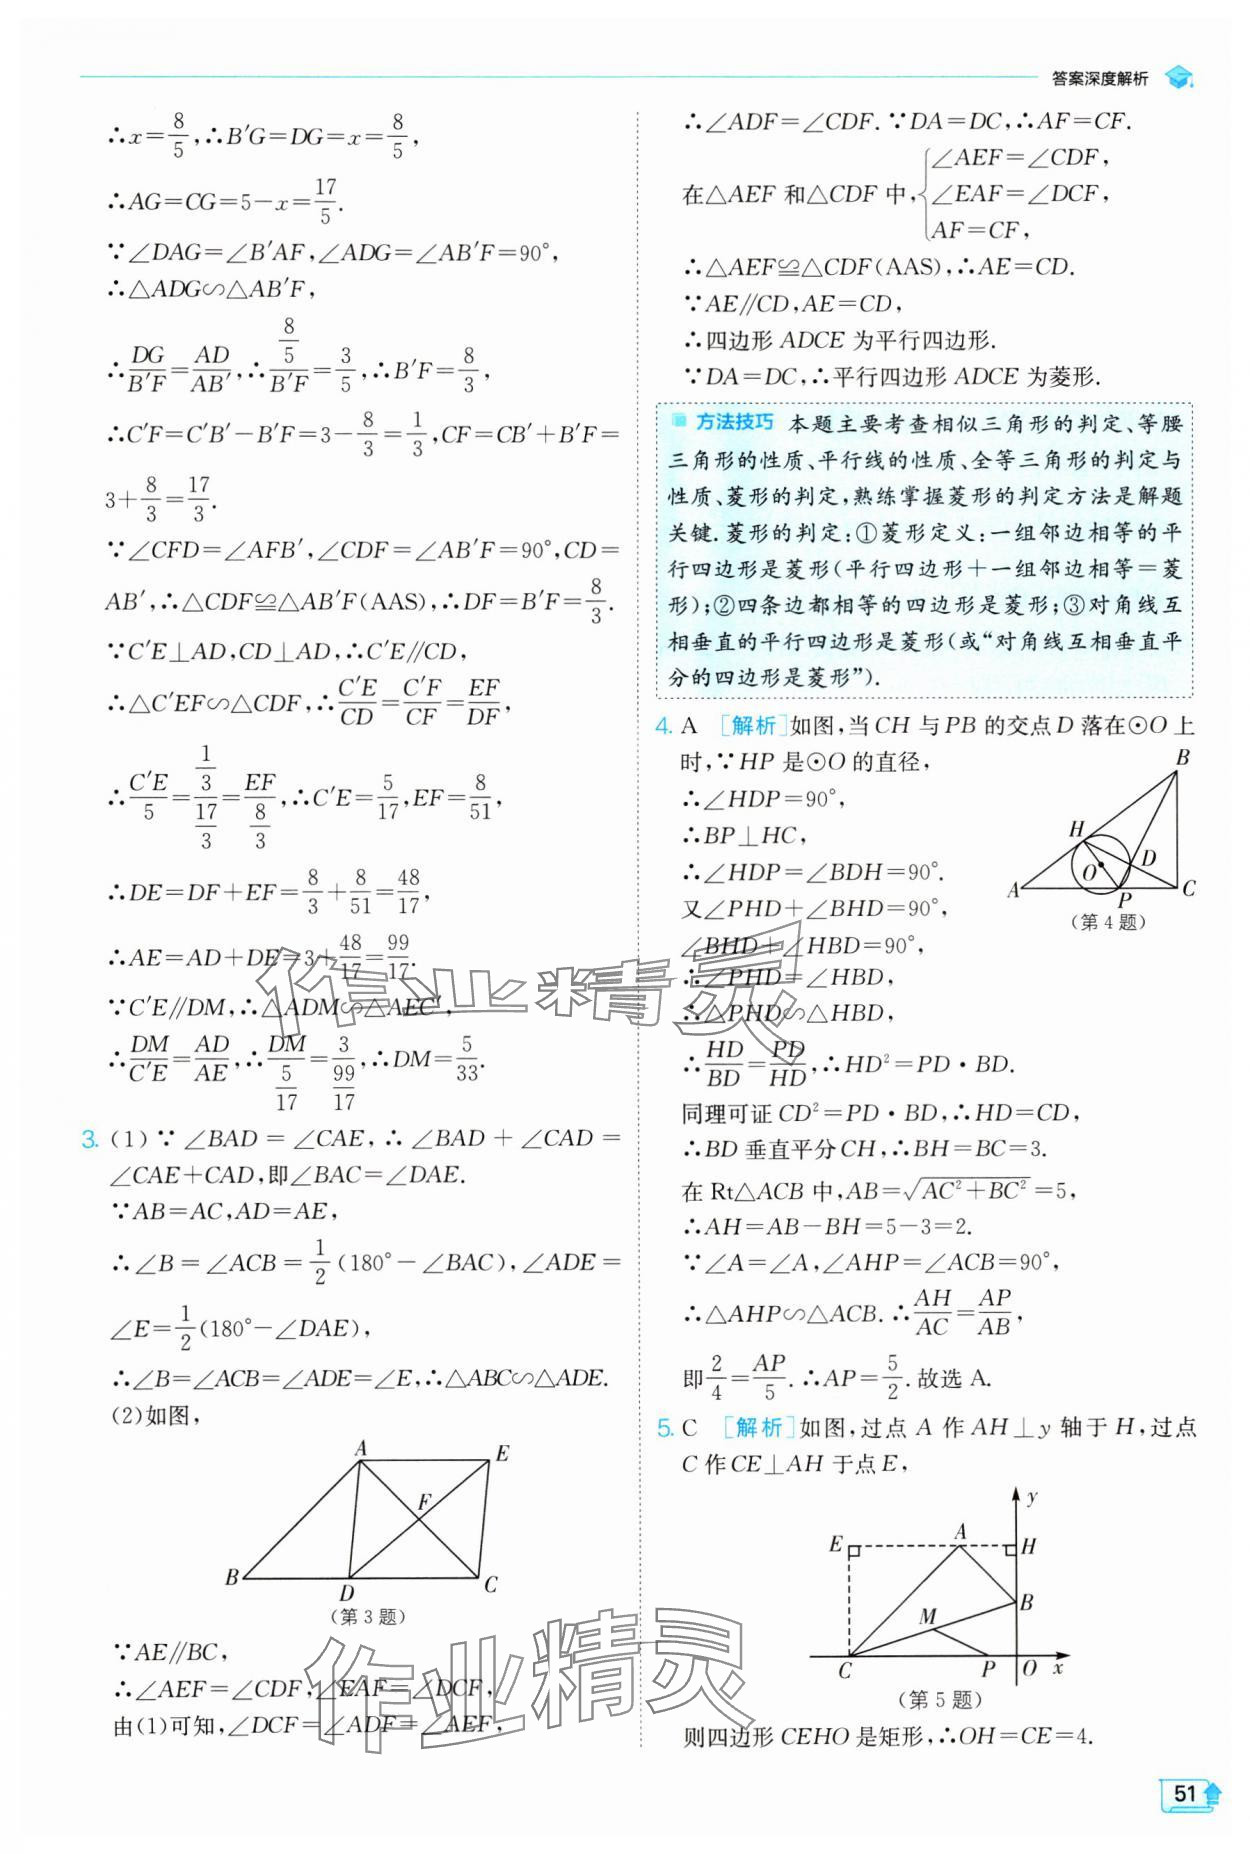 答案深度解析
∴x=8/5,∴B′G=DG=x=8/5,
∴AG=CG=5-x=17/5.
∵∠DAG=∠B′AF,∠ADG=∠AB′F=90°,
∴△ADG∽△AB′F,
∴DG/B′F=AD/AB′,∴(8/5)/B′F=3/5,∴B′F=8/3,
∴C′F=C′B′-B′F=3-8/3=1/3,CF=CB′+B′F=
3+8/3=17/3.
∵∠CFD=∠AFB′,∠CDF=∠AB′F=90°,CD=
AB′,∴△CDF≌△AB′F(AAS),∴DF=B′F=8/3.
∵C′E⊥AD,CD⊥AD,∴C′E∥CD,
∴△C′EF∽△CDF,∴C′E/CD=C′F/CF=EF/DF,
∴C′E/5=(1/3)/(17/3)=EF/(8/3),∴C′E=5/17,EF=8/51,
∴DE=DF+EF=8/3+8/51=48/17,
∴AE=AD+DE=3+48/17=99/17.
∵C′E∥DM,∴△ADM∽△AEC′,
∴DM/C′E=AD/AE,∴DM/(5/17)=3/(99/17),∴DM=5/33.
3. (1)∵∠BAD=∠CAE,∴∠BAD+∠CAD=
∠CAE+CAD,即∠BAC=∠DAE.
∵AB=AC,AD=AE,
∴∠B=∠ACB=1/2(180°-∠BAC),∠ADE=
∠E=1/2(180°-∠DAE),
∴∠B=∠ACB=∠ADE=∠E,∴△ABC∽△ADE.
(2)如图,
A
E
F
B
D
C
(第3题)
∵AE∥BC,
∴∠AEF=∠CDF,∠EAF=∠DCF,
由(1)可知,∠DCF=∠ADF=∠AEF,
∴∠ADF=∠CDF.∵DA=DC,∴AF=CF.
在△AEF和△CDF中,{∠AEF=∠CDF,
∠EAF=∠DCF,
AF=CF,
∴△AEF≌△CDF(AAS),∴AE=CD.
∵AE∥CD,AE=CD,
∴四边形ADCE为平行四边形.
∵DA=DC,∴平行四边形ADCE为菱形.
方法技巧 本题主要考查相似三角形的判定、等腰
三角形的性质、平行线的性质、全等三角形的判定与
性质、菱形的判定,熟练掌握菱形的判定方法是解题
关键.菱形的判定:①菱形定义:一组邻边相等的平
行四边形是菱形(平行四边形+一组邻边相等=菱
形);②四条边都相等的四边形是菱形;③对角线互
相垂直的平行四边形是菱形(或“对角线互相垂直平
分的四边形是菱形”).
4. A [解析]如图,当CH与PB的交点D落在⊙O上
时,∵HP是⊙O的直径,
∴∠HDP=90°,
∴BP⊥HC,
∴∠HDP=∠BDH=90°.
又∠PHD+∠BHD=90°,
∠BHD+∠HBD=90°,
∴∠PHD=∠HBD,
∴△PHD∽△HBD,
∴HD/BD=PD/HD,∴HD²=PD·BD.
B
H
D
O
A
P
C
(第4题)
同理可证CD²=PD·BD,∴HD=CD,
∴BD垂直平分CH,∴BH=BC=3.
在Rt△ACB中,AB=√(AC²+BC²)=5,
∴AH=AB-BH=5-3=2.
∵∠A=∠A,∠AHP=∠ACB=90°,
∴△AHP∽△ACB.∴AH/AC=AP/AB,
即2/4=AP/5.∴AP=5/2.故选A.
5. C [解析]如图,过点A作AH⊥y轴于H,过点
C作CE⊥AH于点E,
y
E
A
H
B
M
C
P
O
x
(第5题)
则四边形CEHO是矩形,∴OH=CE=4.
51
作业精灵
作业精灵